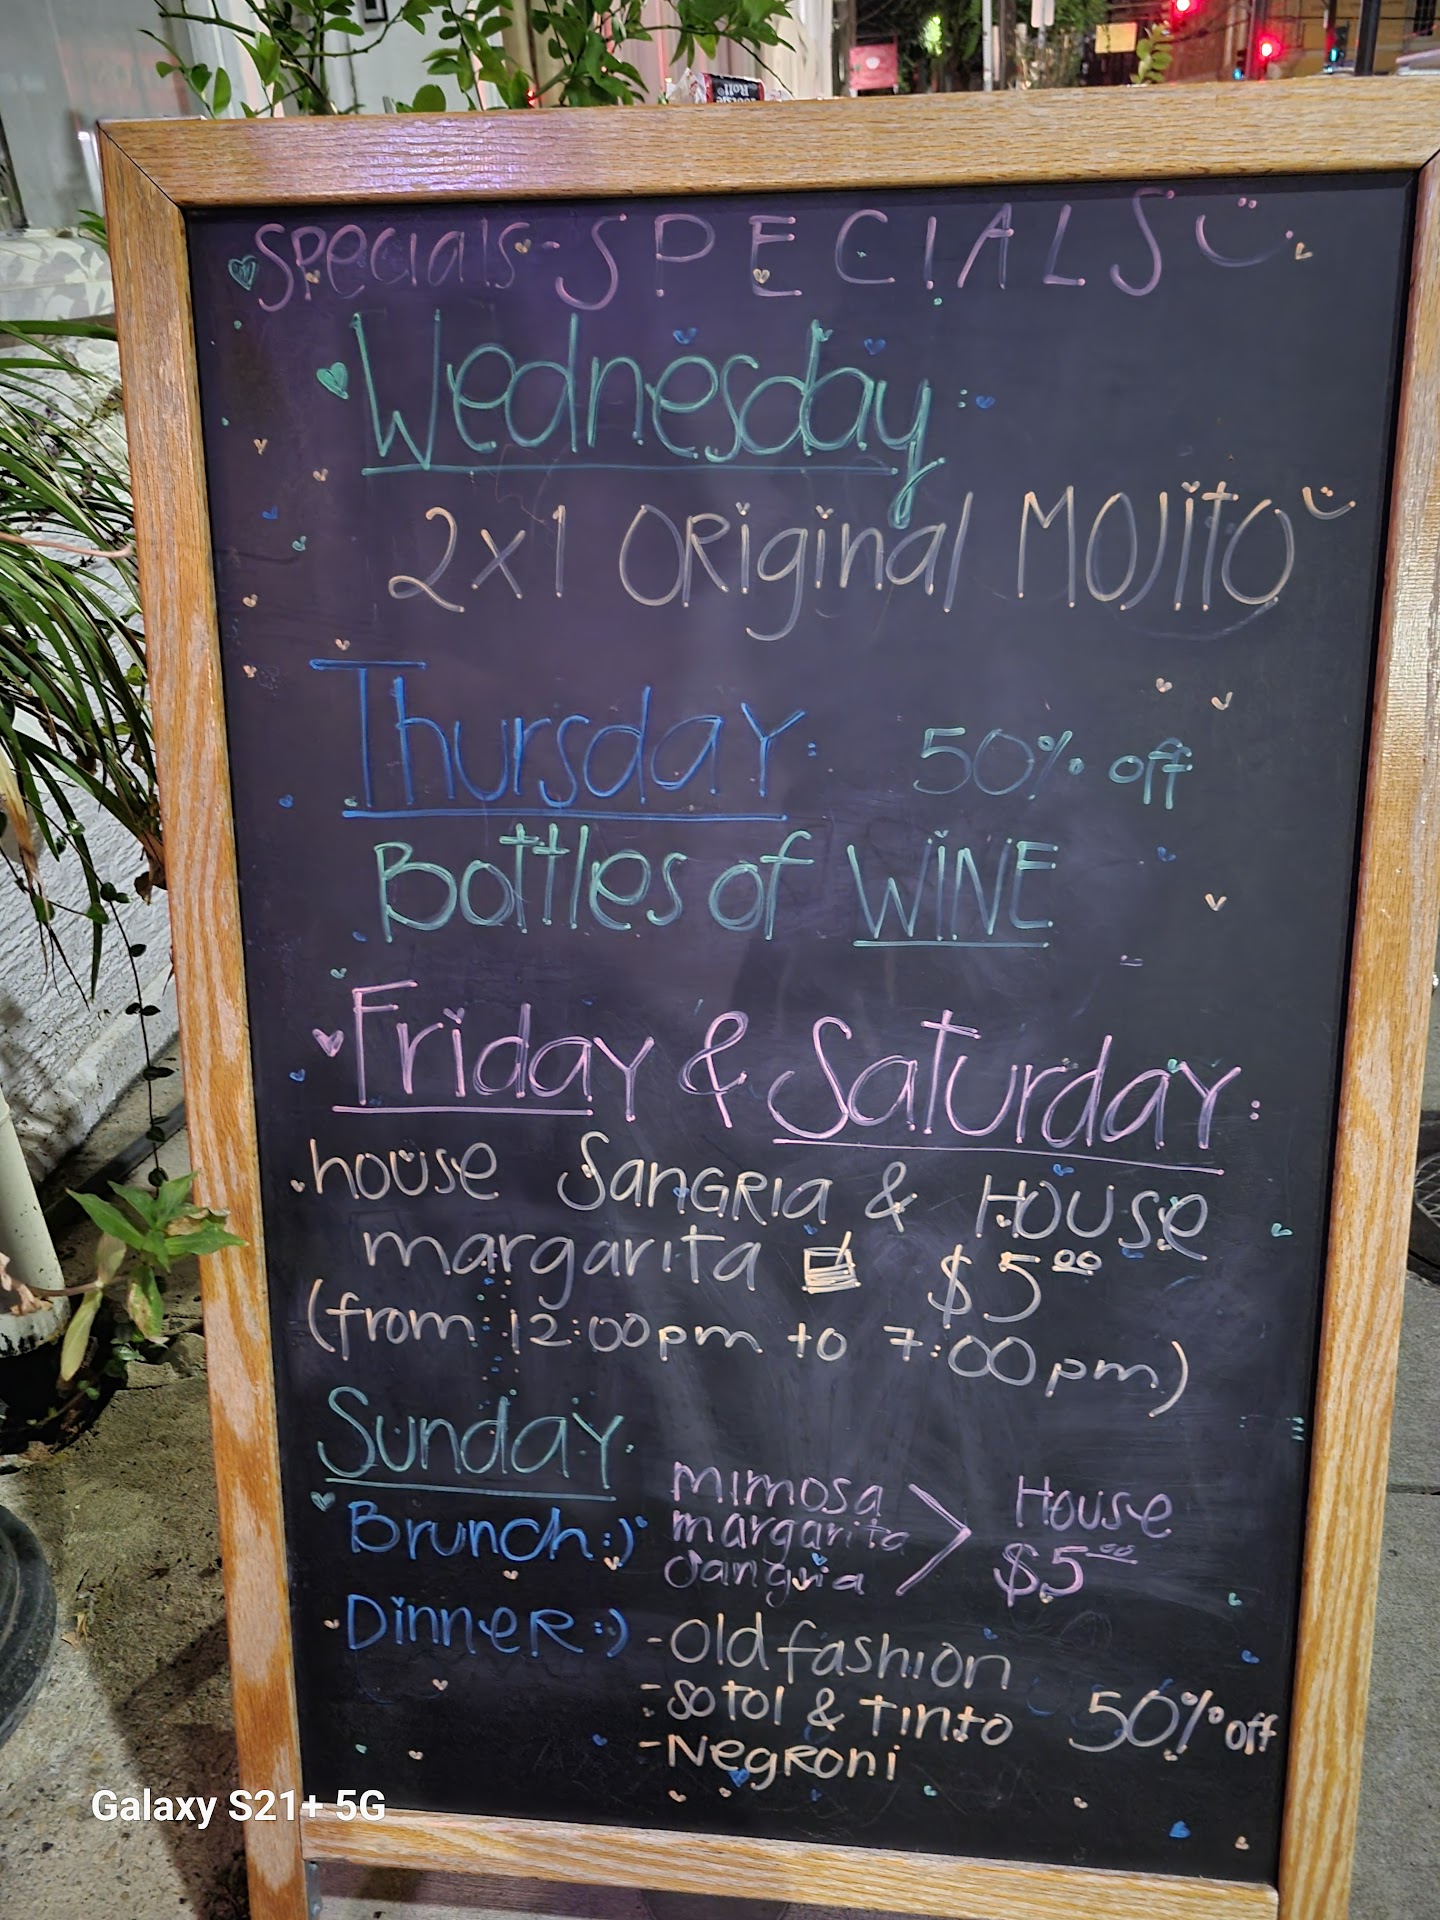 Specials - SPECIALS
Wednesday:
2x1 ORiginal MOJitO
Thursday: 50% off
Bottles of WINE
Friday & Saturday:
house SanGRia & HOUSe
margarita $5.00
(from: 12:00pm to 7:00pm)
Sunday
Brunch:) mimosa
margarita
Sangria
> House
$5.00
DinneR:) - Old fashion
- sotol & tinto
- NegRoni
50% off
Roll
Galaxy S21+ 5G